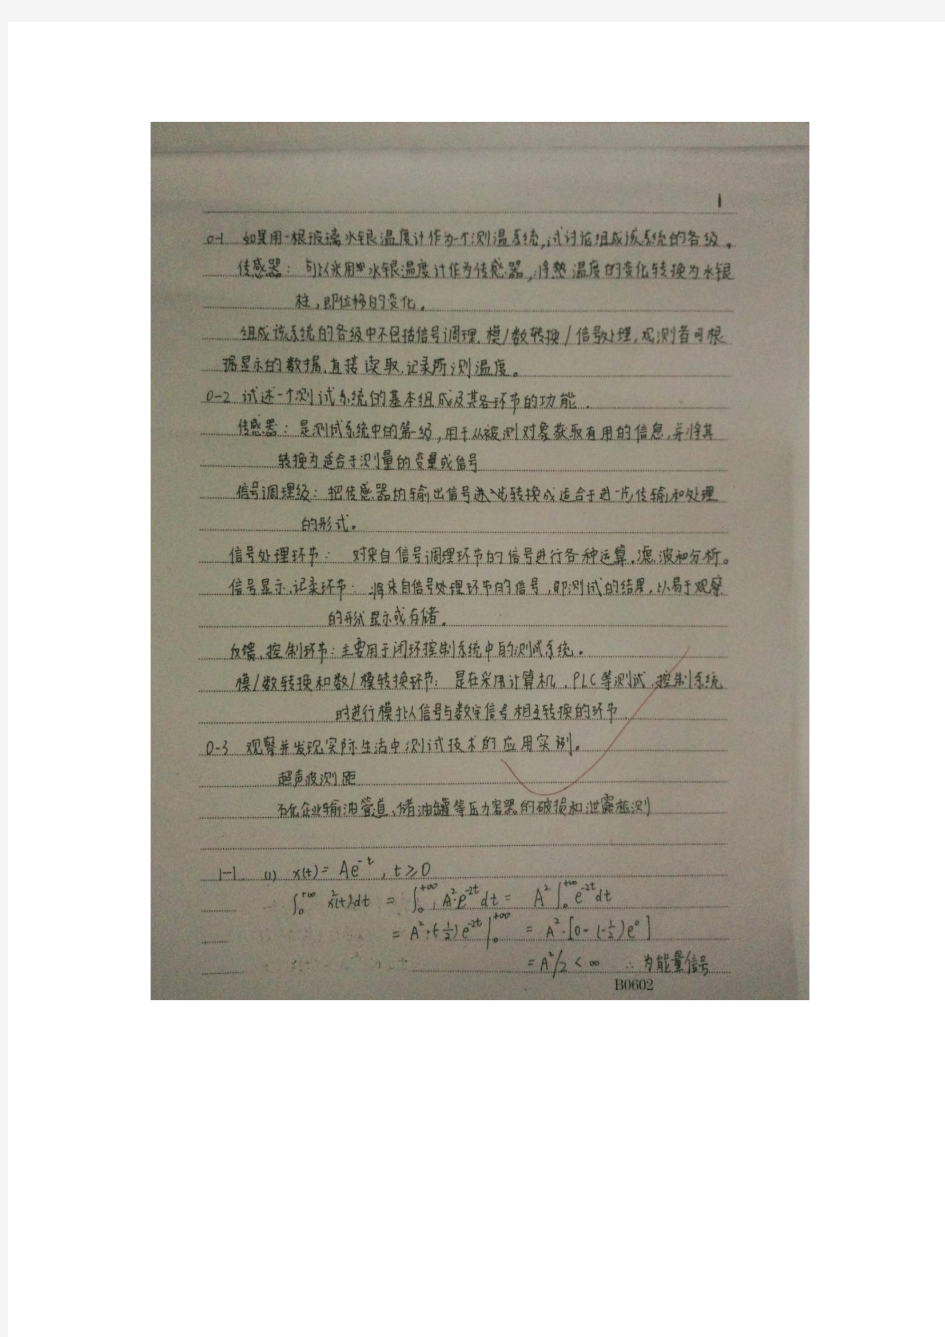 1
0-1 如果用一根玻璃水银温度计作为一个测温系统,试讨论组成该系统的各级。
传感器:可以采用水银温度计作为传感器,将热温度的变化转换为水银
柱,即位移的变化。
组成该系统的各级中不包括信号调理,模/数转换/信号处理,观测者可根
据显示的数据,直接读取,记录所测温度。
0-2 试述一个测试系统的基本组成及其各环节的功能.
传感器:是测试系统中的第一级,用于从被测对象获取有用的信息,并将其
转换为适合于测量的变量或信号
信号调理级:把传感器的输出信号转换成适合于进一步传输和处理
的形式。
信号处理环节: 对来自信号调理环节的信号进行各种运算,滤波和分析。
信号显示、记录环节:将来自信号处理环节的信号,即测试的结果,以易于观察
的形式显示或存储。
反馈、控制环节:主要用于闭环控制系统中的测试系统。
模/数转换和数/模转换环节:是在采用计算机,PLC等测试、控制系统
时进行模拟信号与数字信号相互转换的环节.
0-3 观察并发现实际生活中测试技术的应用实例。
超声波测距
石化企业输油管道、储油罐等压力容器的破损和泄露检测
1-1. (1) x(t)=Ae^{-t}, t≥0
∫₀^{+∞} x²(t)dt = ∫₀^{+∞} A²·e^{-2t}dt = A²∫₀^{+∞} e^{-2t}dt
= A²·(-½)e^{-2t}|₀^{+∞} = A²·[0-(-½)e⁰]
= A²/2 < ∞ ∴为能量信号
B0602